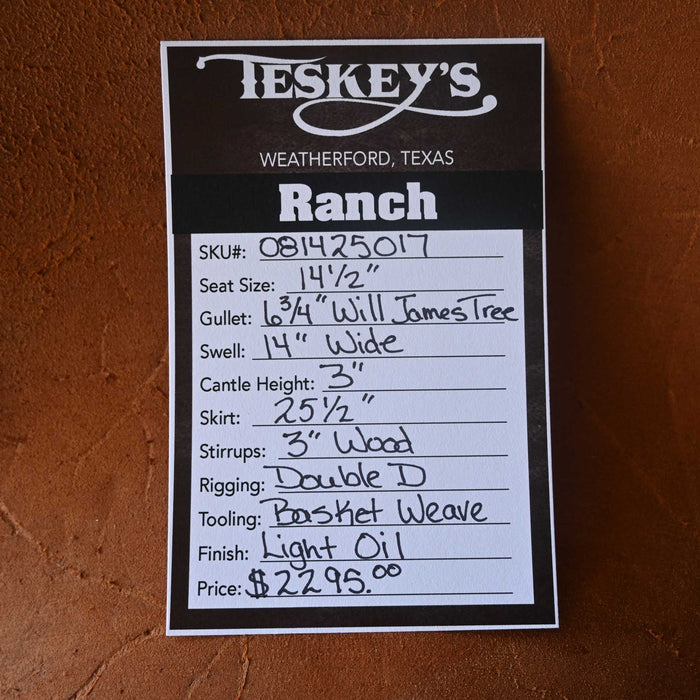 TESKEY'S
WEATHERFORD, TEXAS
Ranch
SKU#: 081425017
Seat Size: 14 1/2"
Gullet: 6 3/4" Will James Tree
Swell: 14" Wide
Cantle Height: 3"
Skirt: 25 1/2"
Stirrups: 3" Wood
Rigging: Double D
Tooling: Basket Weave
Finish: Light Oil
Price: $2295.00